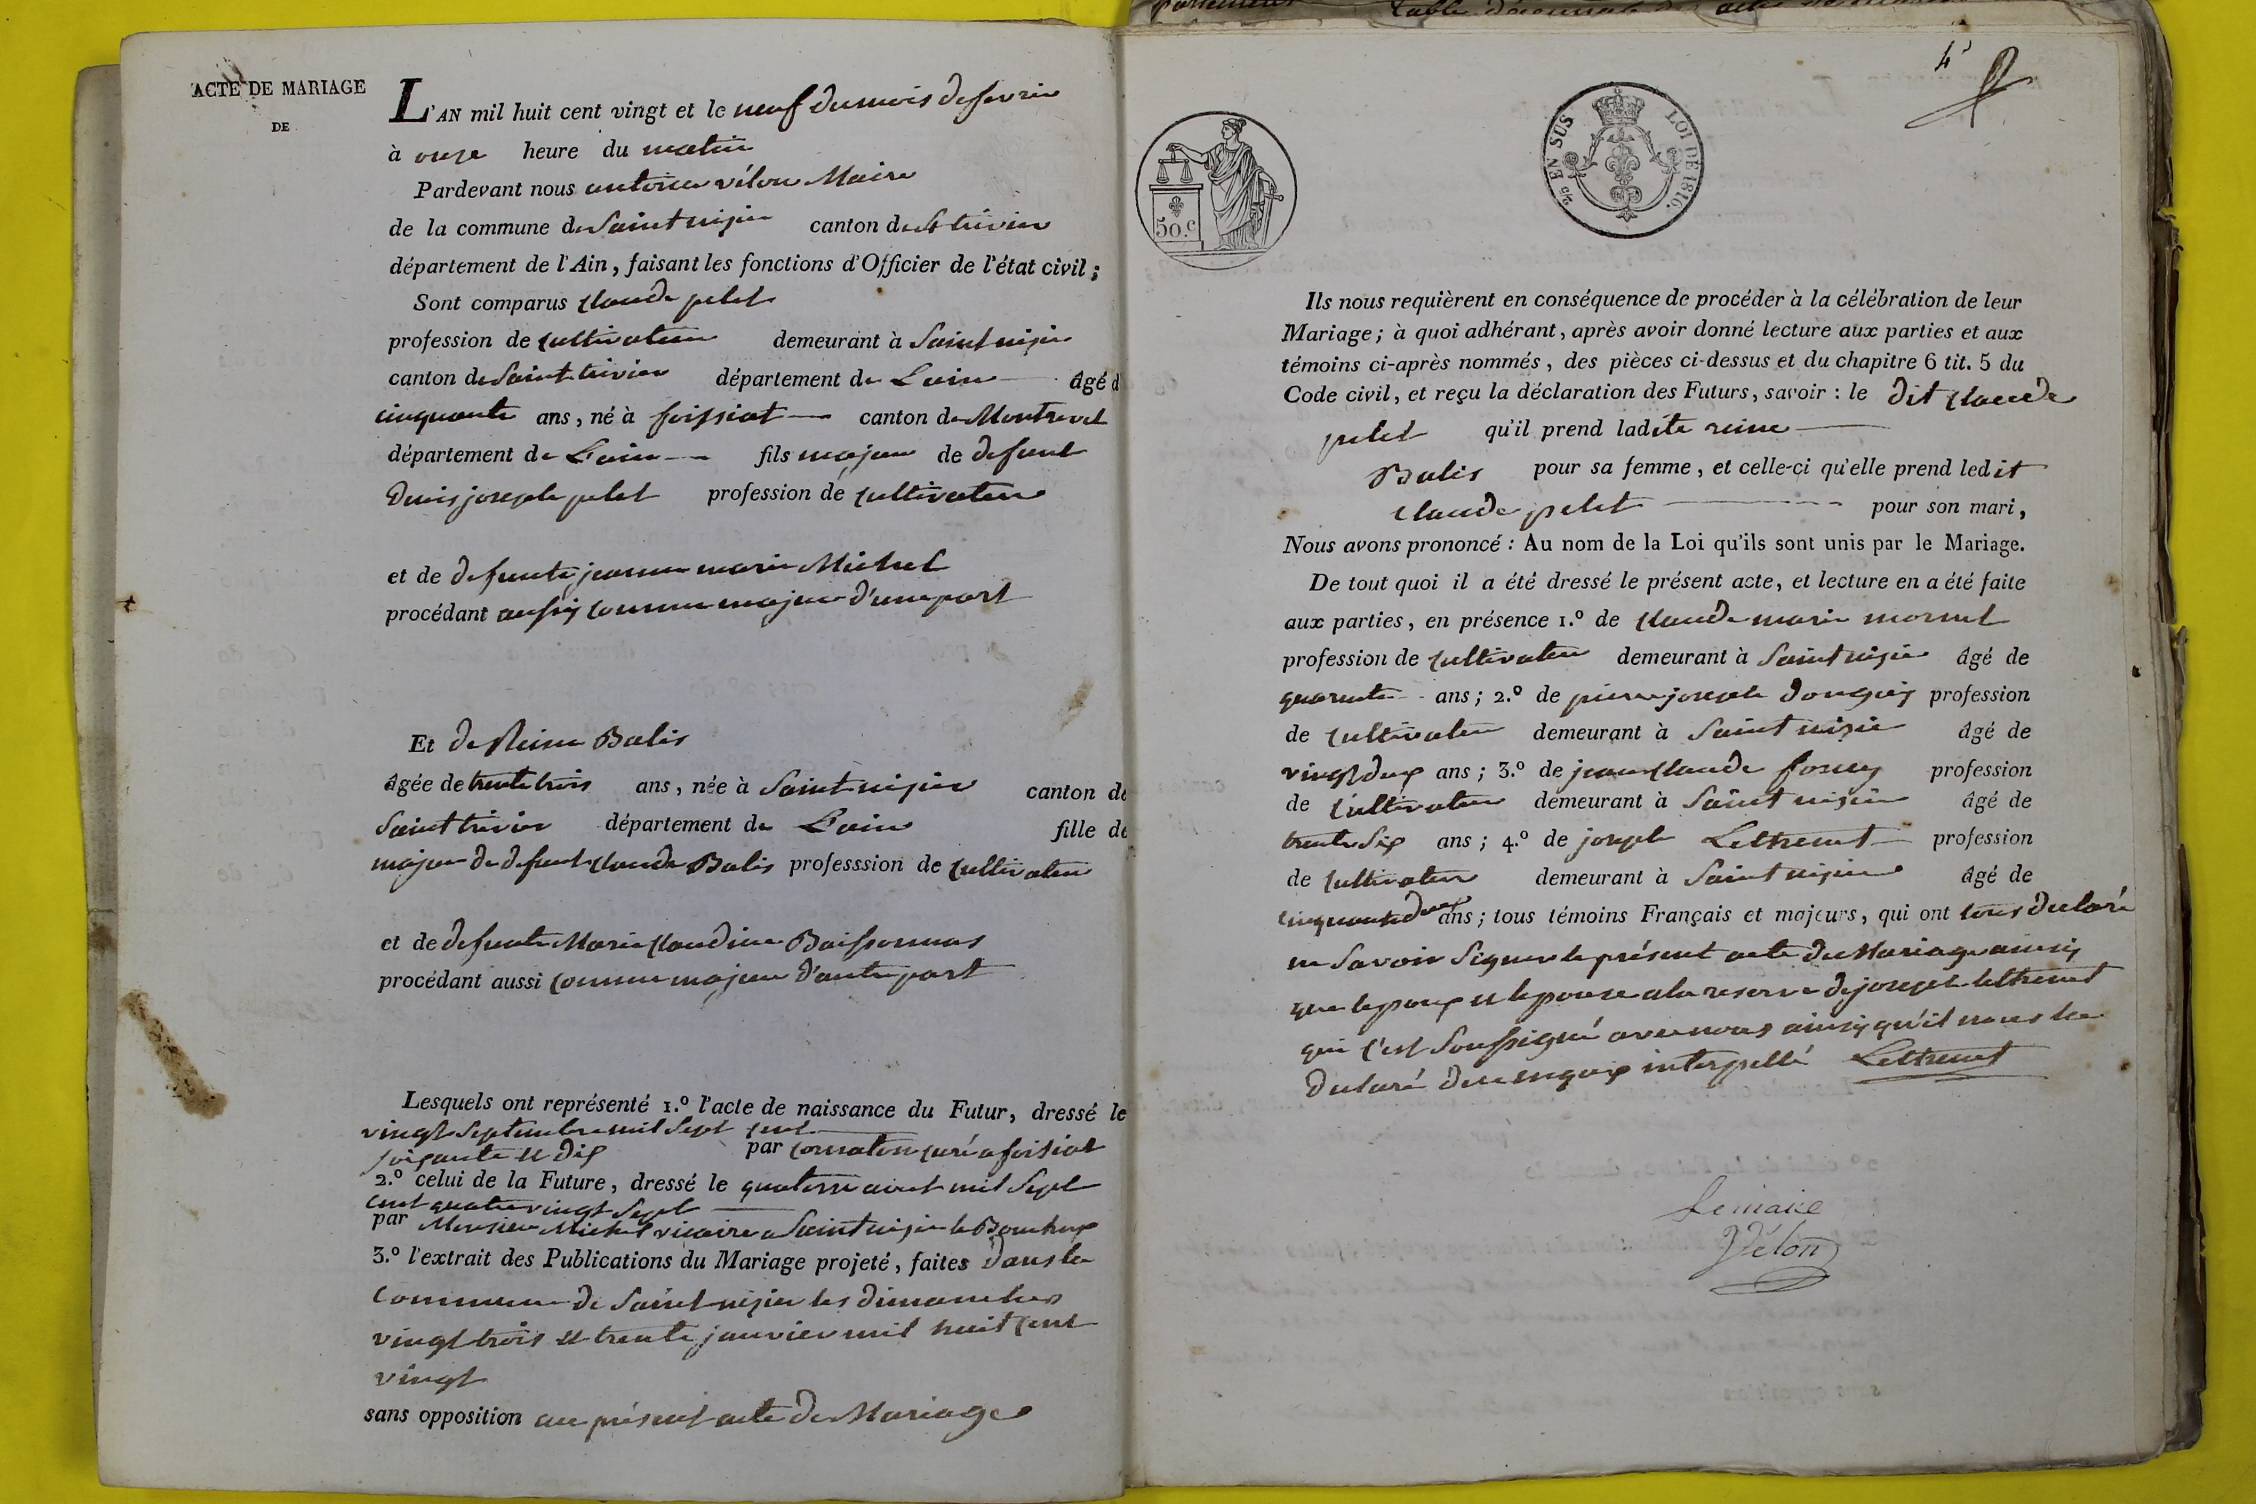 ACTE DE MARIAGE
DE
L'AN mil huit cent vingt et le neuf du mois de fevrier
à onze heure du matin
Pardevant nous antoine vélon Maire
de la commune de Saint nizier canton de St trivier
département de l'Ain, faisant les fonctions d'Officier de l'état civil;
Sont comparus Claude pelet
profession de Cultivateur demeurant à Saint nizier
canton de Saint trivier département de L'ain âgé d
cinquante ans, né à foissiat canton de Montrevel
département de L'ain fils majeur de defunt
Denis joseph pelet profession de Cultivateur
et de defunte jeanne marie Michel
procédant aussy comme majeur d'une part
Et de Reine Balis
âgée de trente trois ans, née à Saint nizier canton de
Saint trivier département de L'ain fille de
majeur de defunt Claude Balis professsion de Cultivateur
et de defunte Marie Claudine Boissonnas
procédant aussi comme majeure d'autre part
Lesquels ont représenté 1.º l'acte de naissance du Futur, dressé le
vingt Septembre mil Sept Cent
soixante et dix par curé a foisiat
2.º celui de la Future, dressé le quatorze aout mil Sept
Cent quatre vingt Sept
par Monsieur Michel vicaire a Saint nizier le Bouchoux
3.º l'extrait des Publications du Mariage projeté, faites dans la
Commune de Saint nizier les dimanches
vingt trois et trente janvier mil huit Cent
vingt
sans opposition au présent acte de Mariage
4
50.c
EN SUS LOI DE 1816.
Ils nous requièrent en conséquence de procéder à la célébration de leur
Mariage; à quoi adhérant, après avoir donné lecture aux parties et aux
témoins ci-après nommés, des pièces ci-dessus et du chapitre 6 tit. 5 du
Code civil, et reçu la déclaration des Futurs, savoir: le dit Claude
pelet qu'il prend ladite reine
Balis pour sa femme, et celle-ci qu'elle prend ledit
Claude pelet pour son mari,
Nous avons prononcé: Au nom de la Loi qu'ils sont unis par le Mariage.
De tout quoi il a été dressé le présent acte, et lecture en a été faite
aux parties, en présence 1.º de Claude marie mornet
profession de Cultivateur demeurant à Saint nizier âgé de
quarente ans; 2.º de pierre joseph profession
de Cultivateur demeurant à Saint nizier âgé de
vingt deux ans; 3.º de jean Claude profession
de Cultivateur demeurant à Saint nizier âgé de
trente Six ans; 4.º de joseph Lethenet profession
de Cultivateur demeurant à Saint nizier âgé de
cinquante deux ans; tous témoins Français et majeurs, qui ont tous declaré
ne Savoir Signer le présent acte de Mariage ainsy
que lepoux et lepouse a la reserve de joseph lethenet
qui c'est Soussigné avec nous ainsy qu'il nous la
declaré de ce enquis interpellé Lethenet
Le maire
Vélon